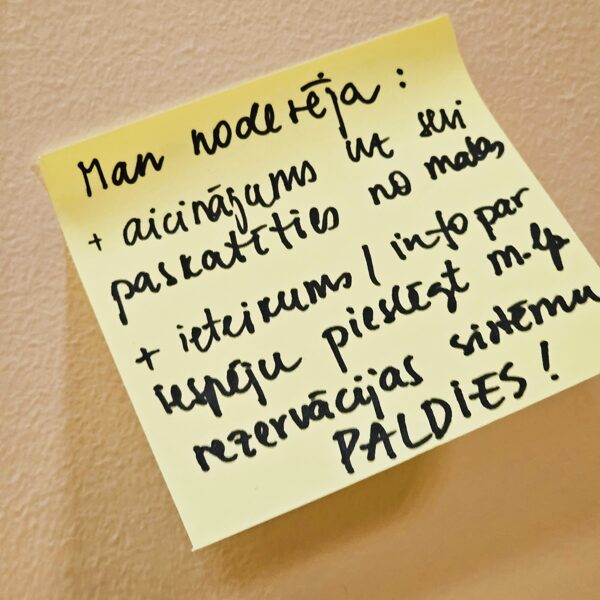 Man noderēja:
+ aicinājums uz sevi
paskatīties no malas
+ ieteikums / info par
iespēju pieslēgt m.lp
rezervācijas sistēmu
PALDIES!